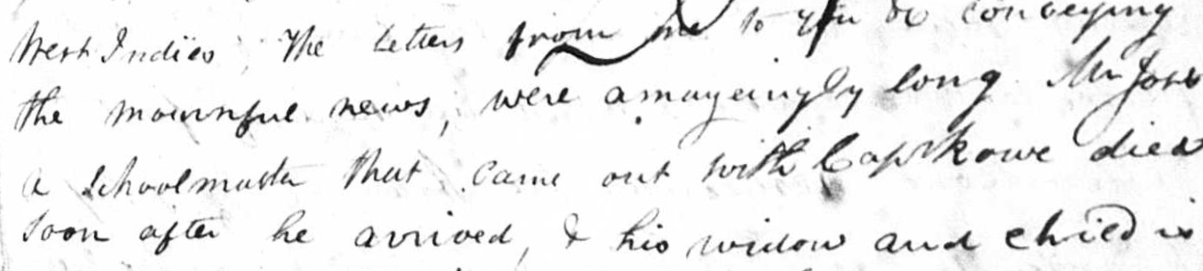 West Indies, The letters from me to you & conveying
the mournful news, were amazeingly long. Mr
a schoolmaster that came out with Capt died
soon after he arrived, & his widow and child is